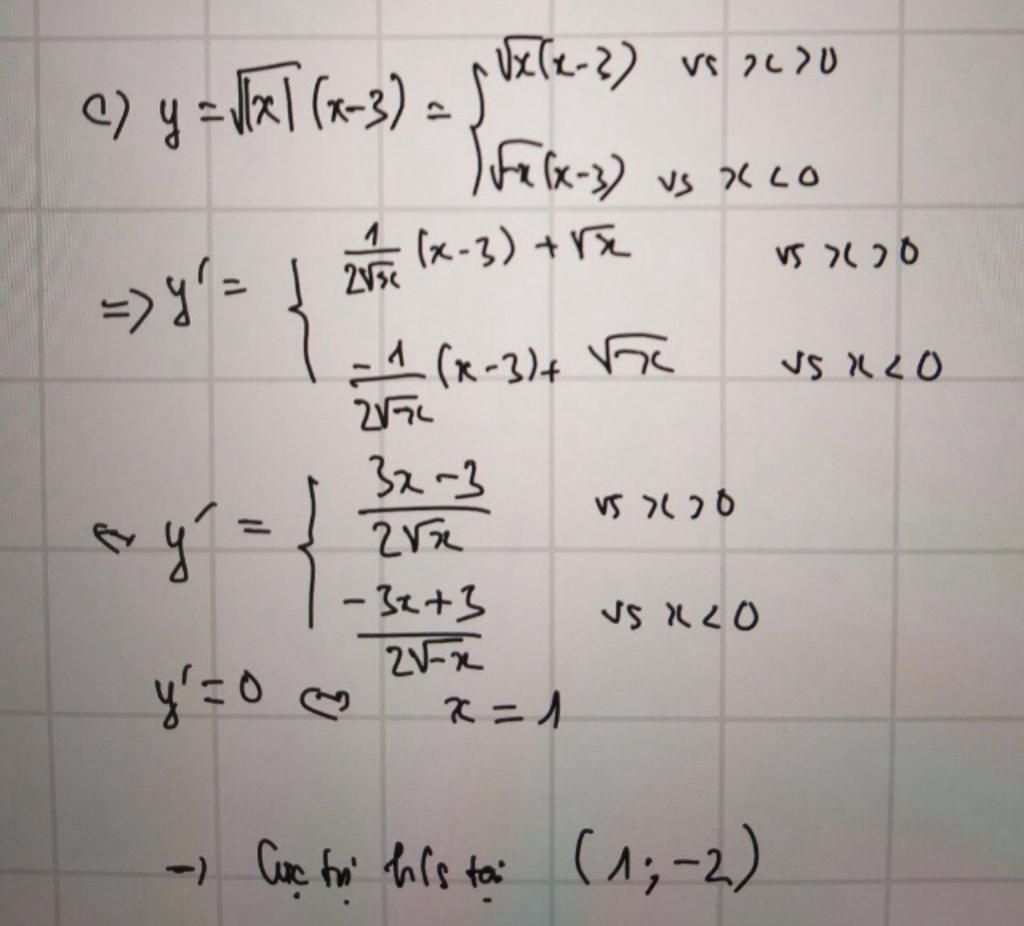 c) y = √|x| (x-3) = { √x(x-3) vs x>0
√-x(x-3) vs x<0
=> y' = { 1/(2√x) (x-3) + √x vs x>0
-1/(2√-x) (x-3) + √-x vs x<0
⇔ y' = { (3x-3)/(2√x) vs x>0
(-3x+3)/(2√-x) vs x<0
y'=0 ⇔ x = 1
→ Cực trị h/s tại (1; -2)